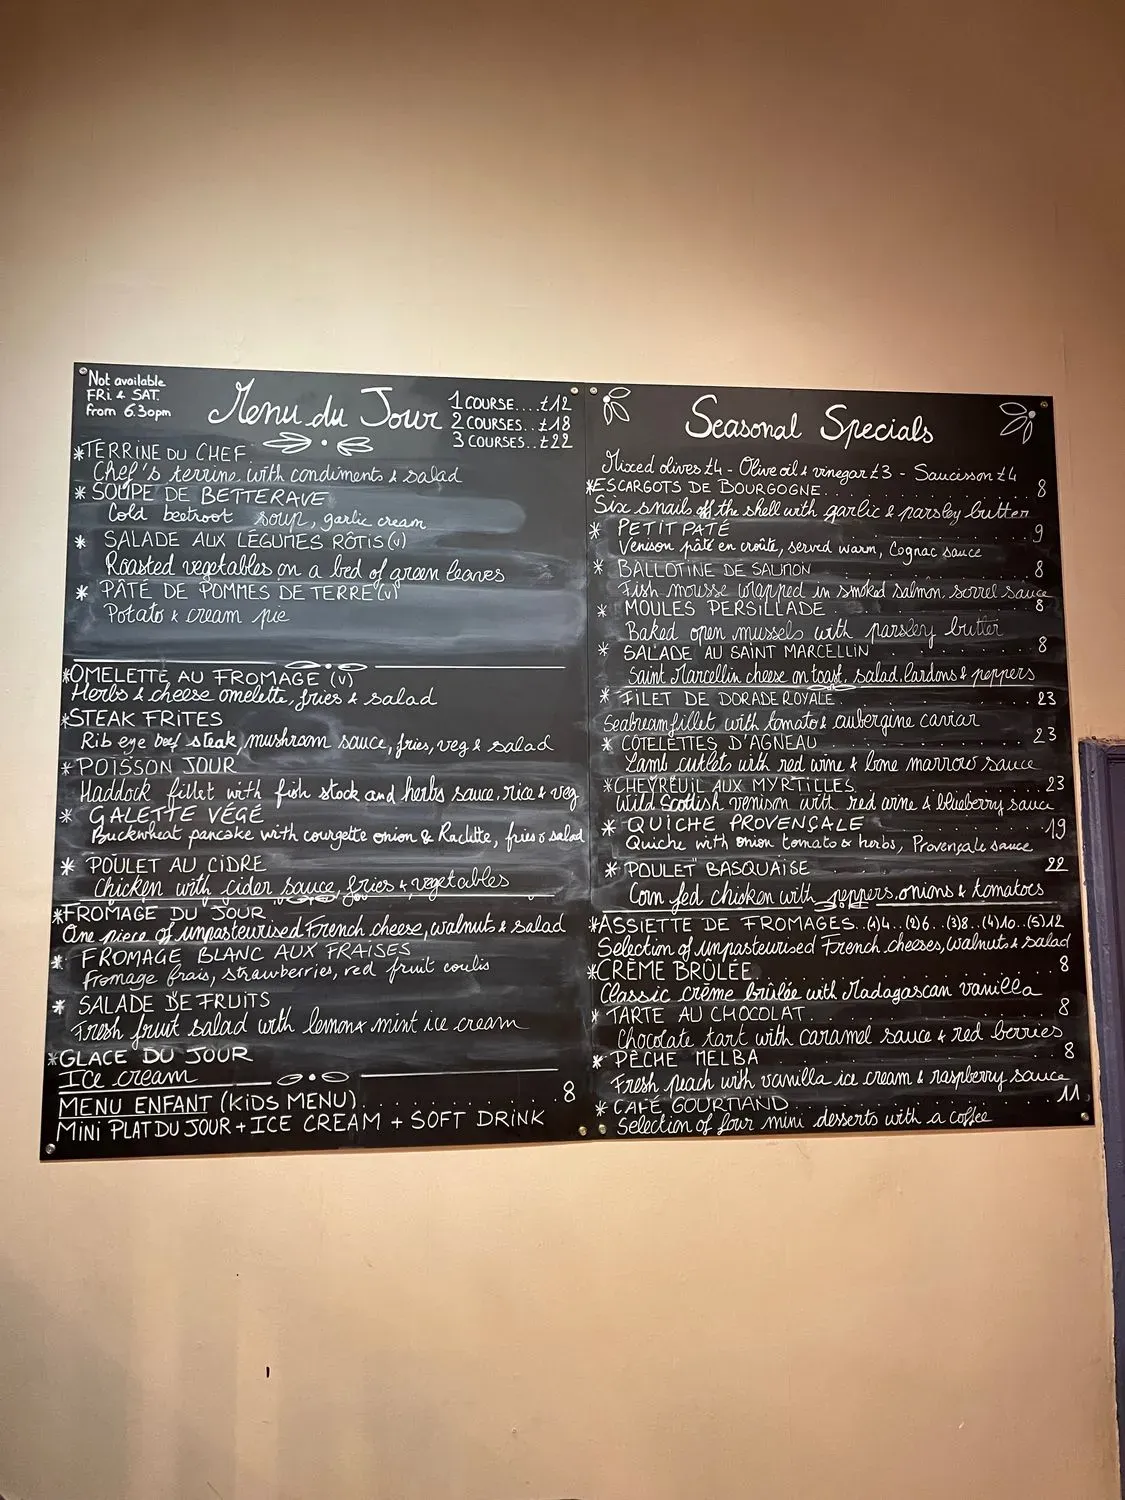 Not available
FRi & SAT.
from 6.30pm
Menu du Jour
1 COURSE....£12
2 COURSES..£18
3 COURSES..£22
*TERRINE DU CHEF
Chef's terrine with condiments & salad
* SOUPE DE BETTERAVE
Cold beetroot soup, garlic cream
* SALADE AUX LÉGUMES RÔTIS (v)
Roasted vegetables on a bed of green leaves
* PÂTÉ DE POMMES DE TERRE (v)
Potato & cream pie
*OMELETTE AU FROMAGE (v)
Herbs & cheese omelette, fries & salad
*STEAK FRITES
Rib eye beef steak, mushroom sauce, fries, veg & salad
*POISSON JOUR
Haddock fillet with fish stock and herbs sauce, rice & veg
* GALETTE VÉGÉ
Buckwheat pancake with courgette onion & Raclette, fries & salad
* POULET AU CIDRE
Chicken with cider sauce, fries & vegetables
*FROMAGE DU JOUR
One piece of unpasteurised French cheese, walnuts & salad
* FROMAGE BLANC AUX FRAISES
Fromage frais, strawberries, red fruit coulis
* SALADE DE FRUITS
Fresh fruit salad with lemon & mint ice cream
*GLACE DU JOUR
Ice cream
MENU ENFANT (KiDS MENU) . . . . . . . . . . . 8
MiNi PLAT DU JOUR + ICE CREAM + SOFT DRINK
Seasonal Specials
Mixed olives £4 - Olive oil & vinegar £3 - Saucisson £4
*ESCARGOTS DE BOURGOGNE. . . . . . . . . 8
Six snails off the shell with garlic & parsley butter
* PETIT PATÉ . . . . . . . . . 9
Venison pâté en croûte, served warm, Cognac sauce
* BALLOTINE DE SAUMON . . . . . . . . . 8
Fish mousse wrapped in smoked salmon, sorrel sauce
* MOULES PERSILLADE . . . . . . . . . 8
Baked open mussels with parsley butter
* SALADE AU SAINT MARCELLIN . . . . . . . . . 8
Saint Marcellin cheese on toast, salad, lardons & peppers
* FILET DE DORADE ROYALE. . . . . . . . . 23
Seabream fillet with tomato & aubergine caviar
* CÔTELETTES D'AGNEAU . . . . . . . . . 23
Lamb cutlets with red wine & bone marrow sauce
*CHEVREUIL AUX MYRTILLES . . . . . . . . . 23
Wild Scottish venison with red wine & blueberry sauce
* QUICHE PROVENÇALE . . . . . . . . . 19
Quiche with onion tomato & herbs, Provençale sauce
* POULET BASQUAISE . . . . . . . . . 22
Corn fed chicken with peppers, onions & tomatoes
*ASSIETTE DE FROMAGES..(1)4...(2)6...(3)8...(4)10...(5)12
Selection of unpasteurised French cheeses, walnuts & salad
*CRÈME BRÛLÉE . . . . . . . . . 8
Classic crème brûlée with Madagascan vanilla
* TARTE AU CHOCOLAT. . . . . . . . . 8
Chocolate tart with caramel sauce & red berries
* PÊCHE MELBA . . . . . . . . . 8
Fresh peach with vanilla ice cream & raspberry sauce
* CAFÉ GOURMAND . . . . . . . . . 11
Selection of four mini desserts with a coffee